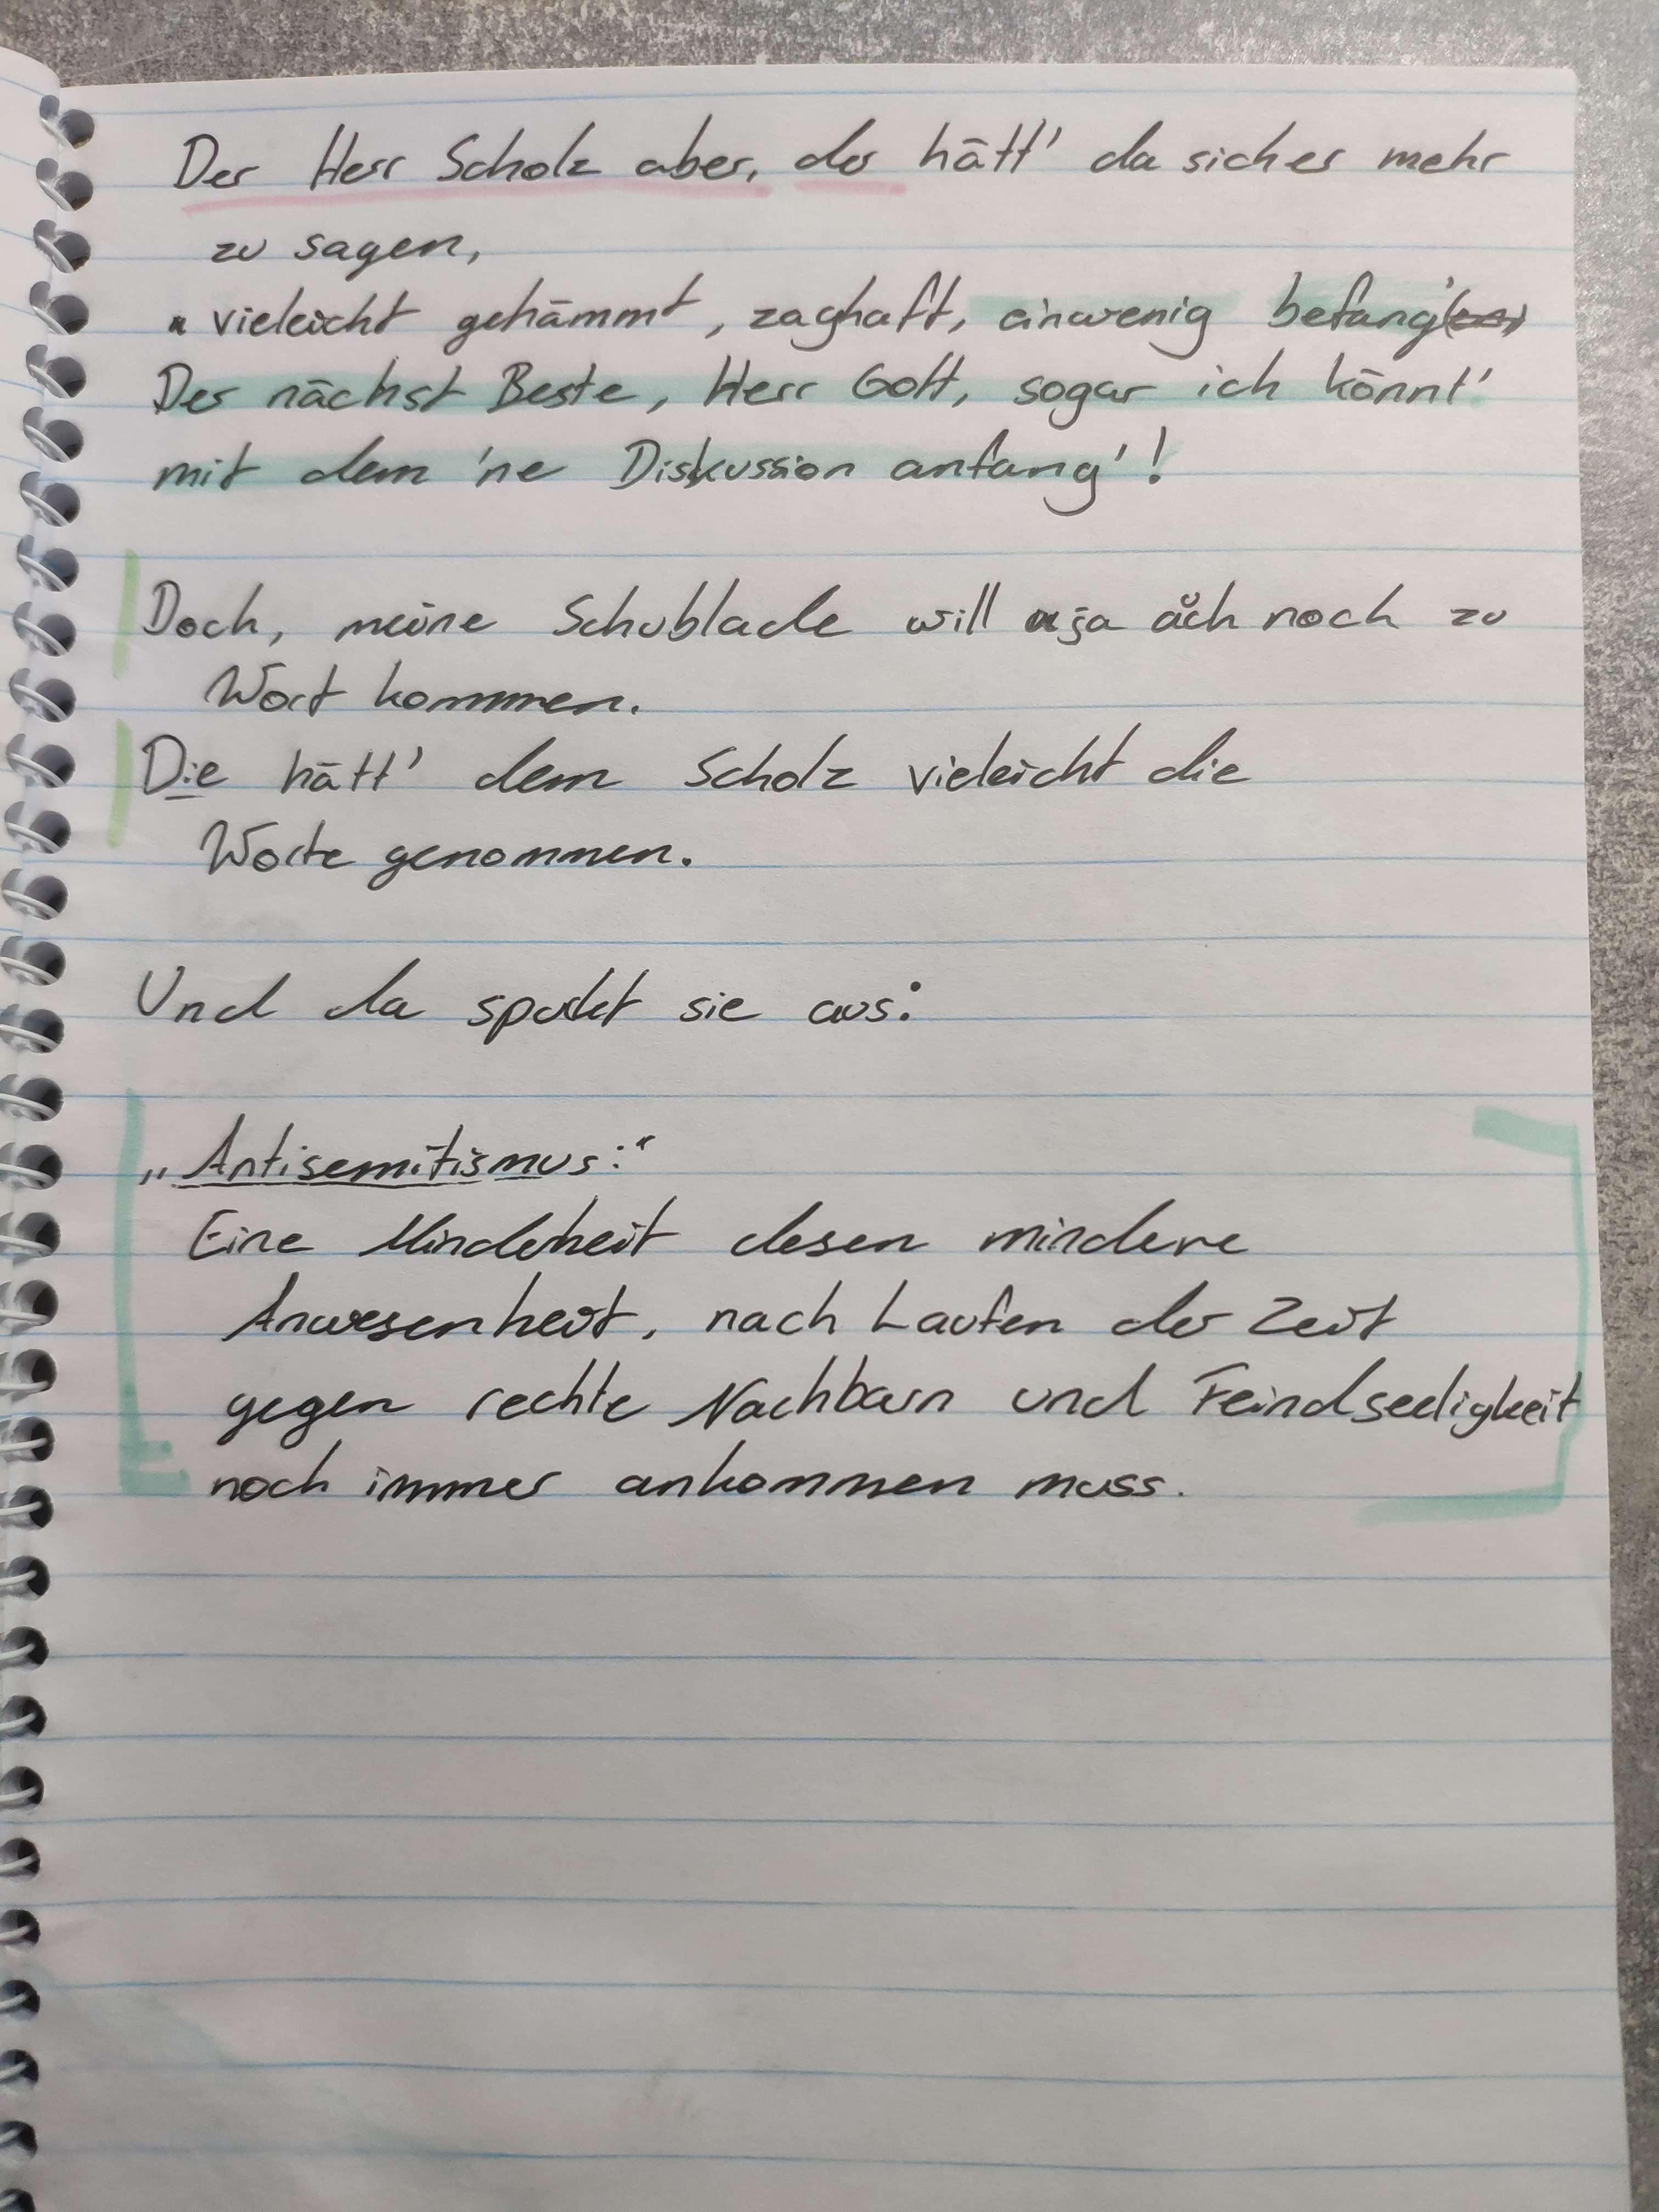 Der Herr Scholz aber, der hätt' da sicher mehr
zu sagen,
vieleicht gehämmt, zaghaft, einwenig befang'
Der nächst Beste, Herr Gott, sogar ich könnt'
mit dem 'ne Diskussion anfang'!
Doch, meine Schublade will ja äch noch zu
Wort kommen.
Die hätt' dem Scholz vieleicht die
Worte genommen.
Und da spuckt sie aus:
„Antisemitismus:“
Eine Minderheit desen mindere
Anwesenheit, nach Laufen der Zeit
gegen rechte Nachbarn und Feindseeligkeit
noch immer ankommen muss.